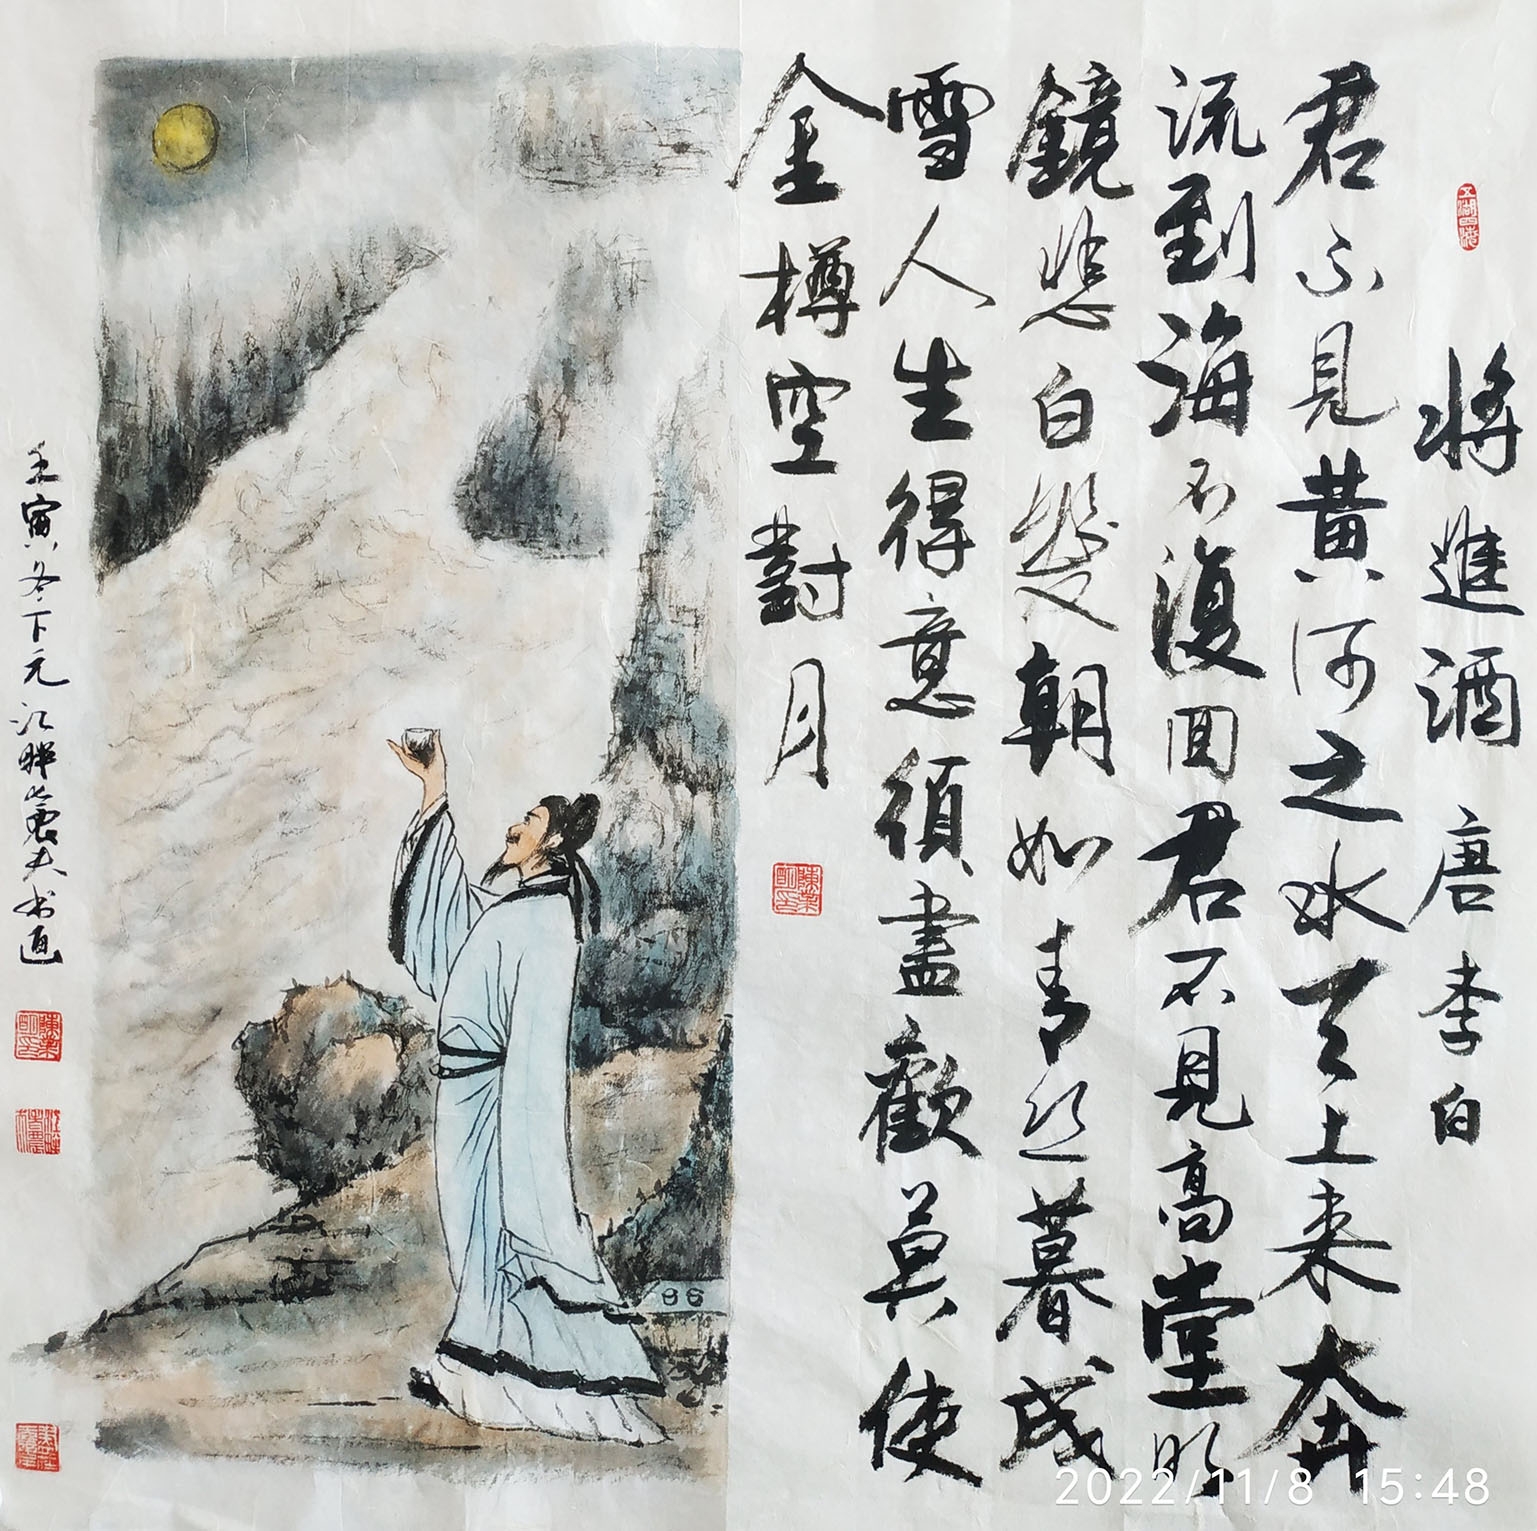 五湖四海
將進酒 唐 李白
君不見黃河之水天上来奔
流到海不復回君不見高堂明
鏡悲白髮朝如青丝暮成
雪人生得意須盡歡莫使
金樽空對月
壬寅冬下元江畔農夫书画
2022/11/8 15:48